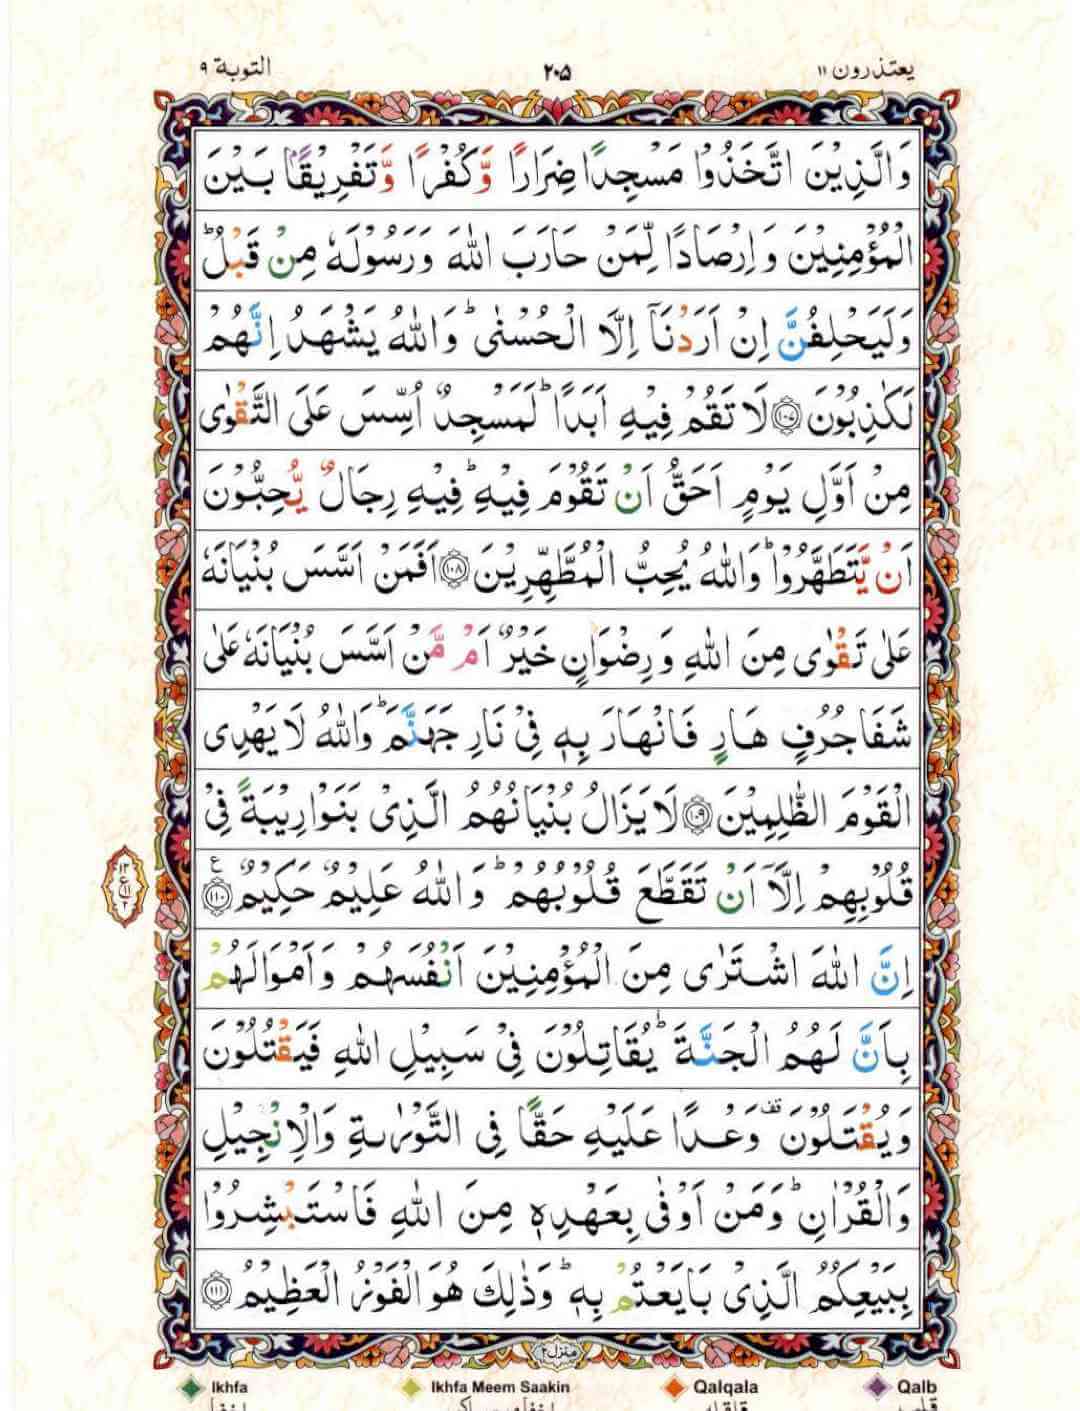 يعتذرون ١١ ٢٠٥ التوبة ٩
وَالَّذِيْنَ اتَّخَذُوْا مَسْجِدًا ضِرَارًا وَّكُفْرًا وَّتَفْرِيْقًۢا بَيْنَ
الْمُؤْمِنِيْنَ وَاِرْصَادًا لِّمَنْ حَارَبَ اللّٰهَ وَرَسُوْلَهٗ مِنْ قَبْلُ ؕ
وَلَيَحْلِفُنَّ اِنْ اَرَدْنَاۤ اِلَّا الْحُسْنٰى ؕ وَاللّٰهُ يَشْهَدُ اِنَّهُمْ
لَكٰذِبُوْنَ ﴿۱۰۷﴾ لَا تَقُمْ فِيْهِ اَبَدًا ؕ لَمَسْجِدٌ اُسِّسَ عَلَى التَّقْوٰى
مِنْ اَوَّلِ يَوْمٍ اَحَقُّ اَنْ تَقُوْمَ فِيْهِ ؕ فِيْهِ رِجَالٌ يُّحِبُّوْنَ
اَنْ يَّتَطَهَّرُوْا ؕ وَاللّٰهُ يُحِبُّ الْمُطَّهِّرِيْنَ ﴿۱۰۸﴾ اَفَمَنْ اَسَّسَ بُنْيَانَهٗ
عَلٰى تَقْوٰى مِنَ اللّٰهِ وَرِضْوَانٍ خَيْرٌ اَمْ مَّنْ اَسَّسَ بُنْيَانَهٗ عَلٰى
شَفَا جُرُفٍ هَارٍ فَانْهَارَ بِهٖ فِيْ نَارِ جَهَنَّمَ ؕ وَاللّٰهُ لَا يَهْدِى
الْقَوْمَ الظّٰلِمِيْنَ ﴿۱۰۹﴾ لَا يَزَالُ بُنْيَانُهُمُ الَّذِيْ بَنَوْا رِيْبَةً فِيْ
قُلُوْبِهِمْ اِلَّاۤ اَنْ تَقَطَّعَ قُلُوْبُهُمْ ؕ وَاللّٰهُ عَلِيْمٌ حَكِيْمٌ ﴿۱۱۰﴾ ع
١٣
ع ١١
٢
اِنَّ اللّٰهَ اشْتَرٰى مِنَ الْمُؤْمِنِيْنَ اَنْفُسَهُمْ وَاَمْوَالَهُمْ
بِاَنَّ لَهُمُ الْجَنَّةَ ؕ يُقَاتِلُوْنَ فِيْ سَبِيْلِ اللّٰهِ فَيَقْتُلُوْنَ
وَيُقْتَلُوْنَ قف وَعْدًا عَلَيْهِ حَقًّا فِى التَّوْرٰىةِ وَالْاِنْجِيْلِ
وَالْقُرْاٰنِ ؕ وَمَنْ اَوْفٰى بِعَهْدِهٖ مِنَ اللّٰهِ فَاسْتَبْشِرُوْا
بِبَيْعِكُمُ الَّذِيْ بَايَعْتُمْ بِهٖ ؕ وَذٰلِكَ هُوَ الْفَوْزُ الْعَظِيْمُ ﴿۱۱۱﴾
منزل ٢
Ikhfa Ikhfa Meem Saakin Qalqala Qalb